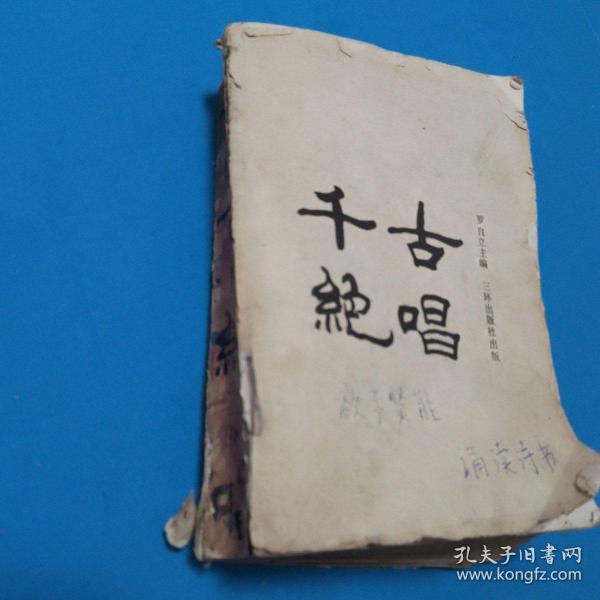 千古
絶唱
罗自立主编 三环出版社出版
欲予贤能
诵读诗书
孔夫子旧書网
www.kongfz.com